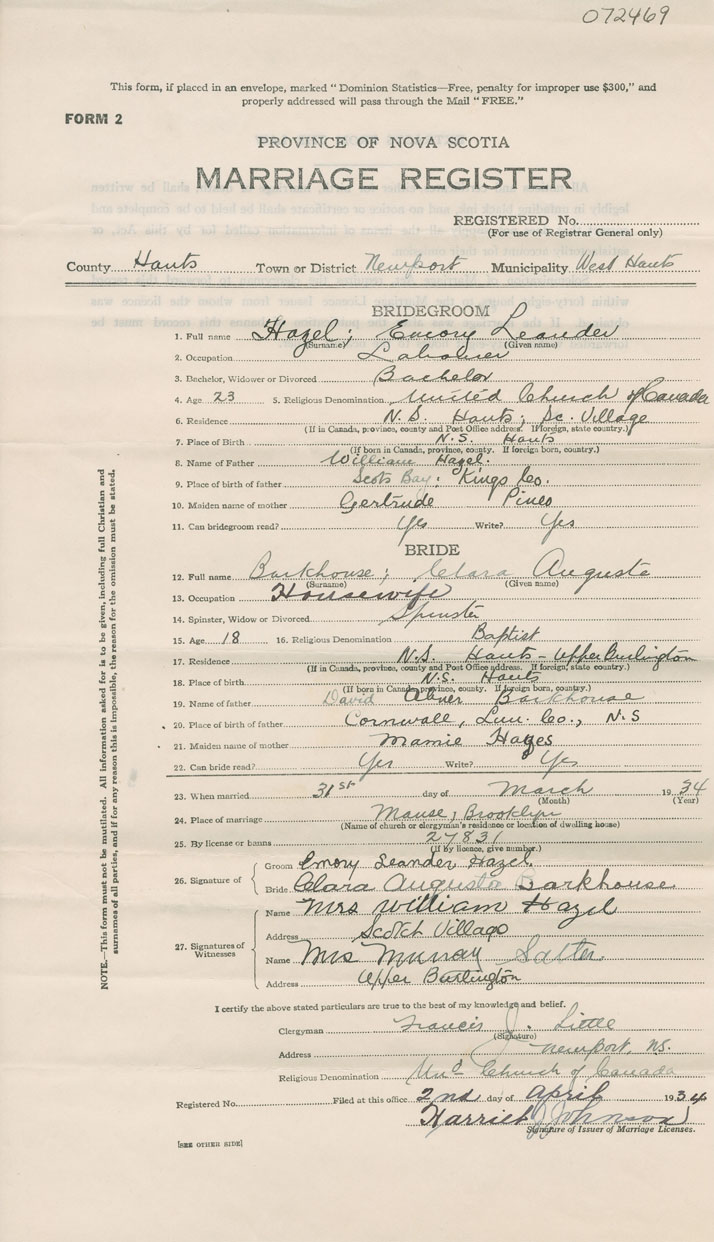 072469
This form, if placed in an envelope, marked "Dominion Statistics—Free, penalty for improper use $300," and
properly addressed will pass through the Mail "FREE."
FORM 2
PROVINCE OF NOVA SCOTIA
MARRIAGE REGISTER
REGISTERED No.
(For use of Registrar General only)
County Hants Town or District Newport Municipality West Hants
BRIDEGROOM
1. Full name Hazel; Emory Leander
(Surname) (Given name)
2. Occupation Labourer
3. Bachelor, Widower or Divorced Bachelor
4. Age 23 5. Religious Denomination United Church of Canada
6. Residence N.S. Hants; Sc. Village
(If in Canada, province, county and Post Office address. If foreign, state country.)
7. Place of Birth N.S. Hants
(If born in Canada, province, county. If foreign born, country.)
8. Name of Father William Hazel.
9. Place of birth of father Scots Bay. Kings Co.
10. Maiden name of mother Gertrude Pineo
11. Can bridegroom read? Yes Write? Yes
BRIDE
12. Full name Barkhouse; Clara Augusta
(Surname) (Given name)
13. Occupation Housewife
14. Spinster, Widow or Divorced Spinster
15. Age 18 16. Religious Denomination Baptist
17. Residence N.S. Hants - Upper Burlington
(If in Canada, province, county and Post Office address. If foreign, state country.)
18. Place of birth N.S. Hants
(If born in Canada, province, county. If foreign born, country.)
19. Name of father David Abner Barkhouse
20. Place of birth of father Cornwall, Lun. Co., N.S
21. Maiden name of mother Mamie Hayes
22. Can bride read? Yes Write? Yes
23. When married 31st day of March 1934
(Month) (Year)
24. Place of marriage Manse, Brooklyn
(Name of church or clergyman's residence or location of dwelling house)
25. By license or banns 27831
(If by licence, give number.)
26. Signature of Groom Emory Leander Hazel
Bride Clara Augusta Barkhouse
27. Signatures of Witnesses
Name Mrs William Hazel
Address Scotch Village
Name Mrs Murray Salter
Address Upper Burlington
I certify the above stated particulars are true to the best of my knowledge and belief.
Clergyman Francis J. Little
(Signature)
Address Newport, N.S.
Religious Denomination Un'd Church of Canada
Registered No. Filed at this office 2nd day of April 1934
Harriet J Johnson
Signature of Issuer of Marriage Licenses.
[SEE OTHER SIDE]
NOTE.—This form must not be mutilated. All information asked for is to be given, including full Christian and
surnames of all parties, and if for any reason this is impossible, the reason for the omission must be stated.